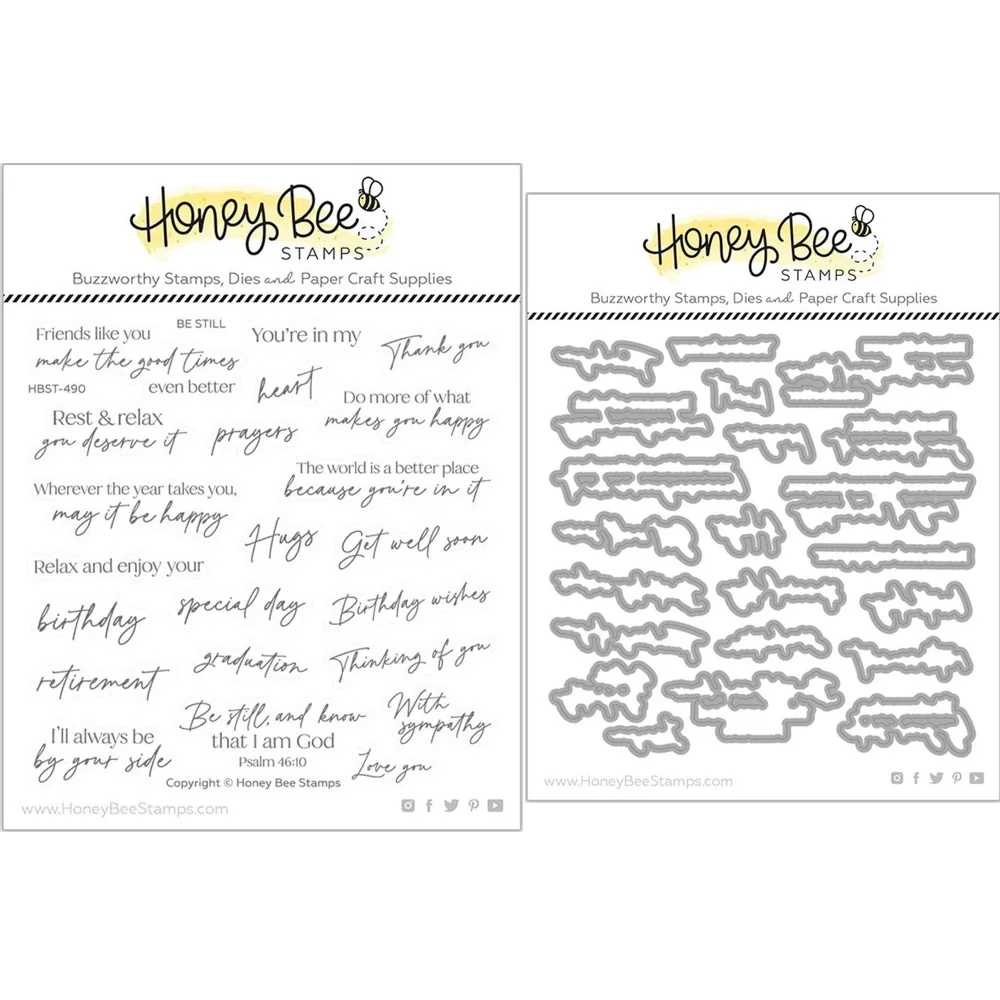 Honey Bee
STAMPS
Buzzworthy Stamps, Dies and Paper Craft Supplies
BE STILL
Friends like you
make the good times
HBST-490
even better
You're in my
heart
Thank you
Do more of what
makes you happy
Rest & relax
you deserve it
prayers
The world is a better place
because you're in it
Wherever the year takes you,
may it be happy
Hugs
Get well soon
Relax and enjoy your
birthday
special day
Birthday wishes
retirement
graduation
Thinking of you
Be still, and know
that I am God
Psalm 46:10
With
sympathy
I'll always be
by your side
Love you
Copyright © Honey Bee Stamps
www.HoneyBeeStamps.com
Honey Bee
STAMPS
Buzzworthy Stamps, Dies and Paper Craft Supplies
www.HoneyBeeStamps.com